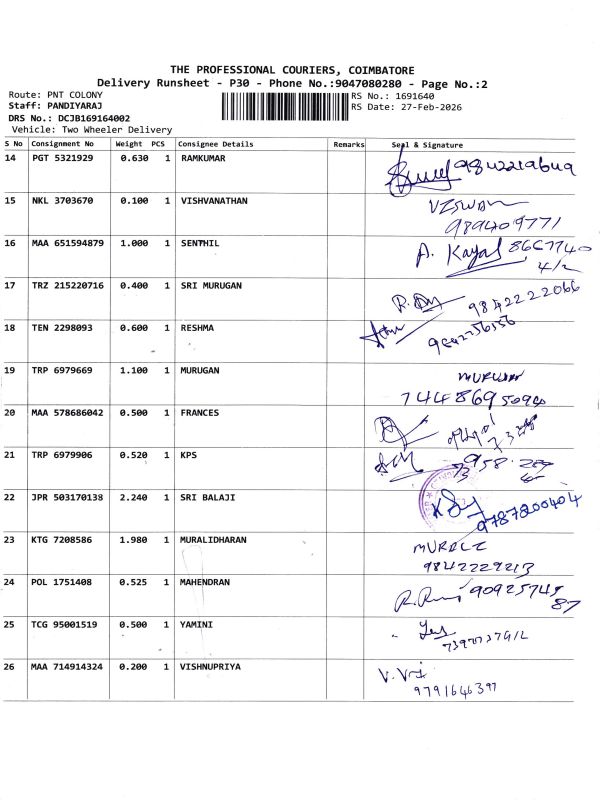 THE PROFESSIONAL COURIERS, COIMBATORE
Delivery Runsheet - P30 - Phone No.:9047080280 - Page No.:2
Route: PNT COLONY
RS No.: 1691640
Staff: PANDIYARAJ
RS Date: 27-Feb-2026
DRS No.: DCJB169164002
Vehicle: Two Wheeler Delivery
S No Consignment No Weight PCS Consignee Details Remarks Seal & Signature
14 PGT 5321929 0.630 1 RAMKUMAR
15 NKL 3703670 0.100 1 VISHVANATHAN
989409771
16 MAA 651594879 1.000 1 SENTHIL A. Kayal 8667740
17 TRZ 215220716 0.400 1 SRI MURUGAN 9842222066
18 TEN 2298093 0.600 1 RESHMA
19 TRP 6979669 1.100 1 MURUGAN MURUGAN
7448695094
20 MAA 578686042 0.500 1 FRANCES
21 TRP 6979906 0.520 1 KPS
22 JPR 503170138 2.240 1 SRI BALAJI
9787800404
23 KTG 7208586 1.980 1 MURALIDHARAN
9842229213
24 POL 1751408 0.525 1 MAHENDRAN 90925745
87
25 TCG 95001519 0.500 1 YAMINI
26 MAA 714914324 0.200 1 VISHNUPRIYA
9791646397